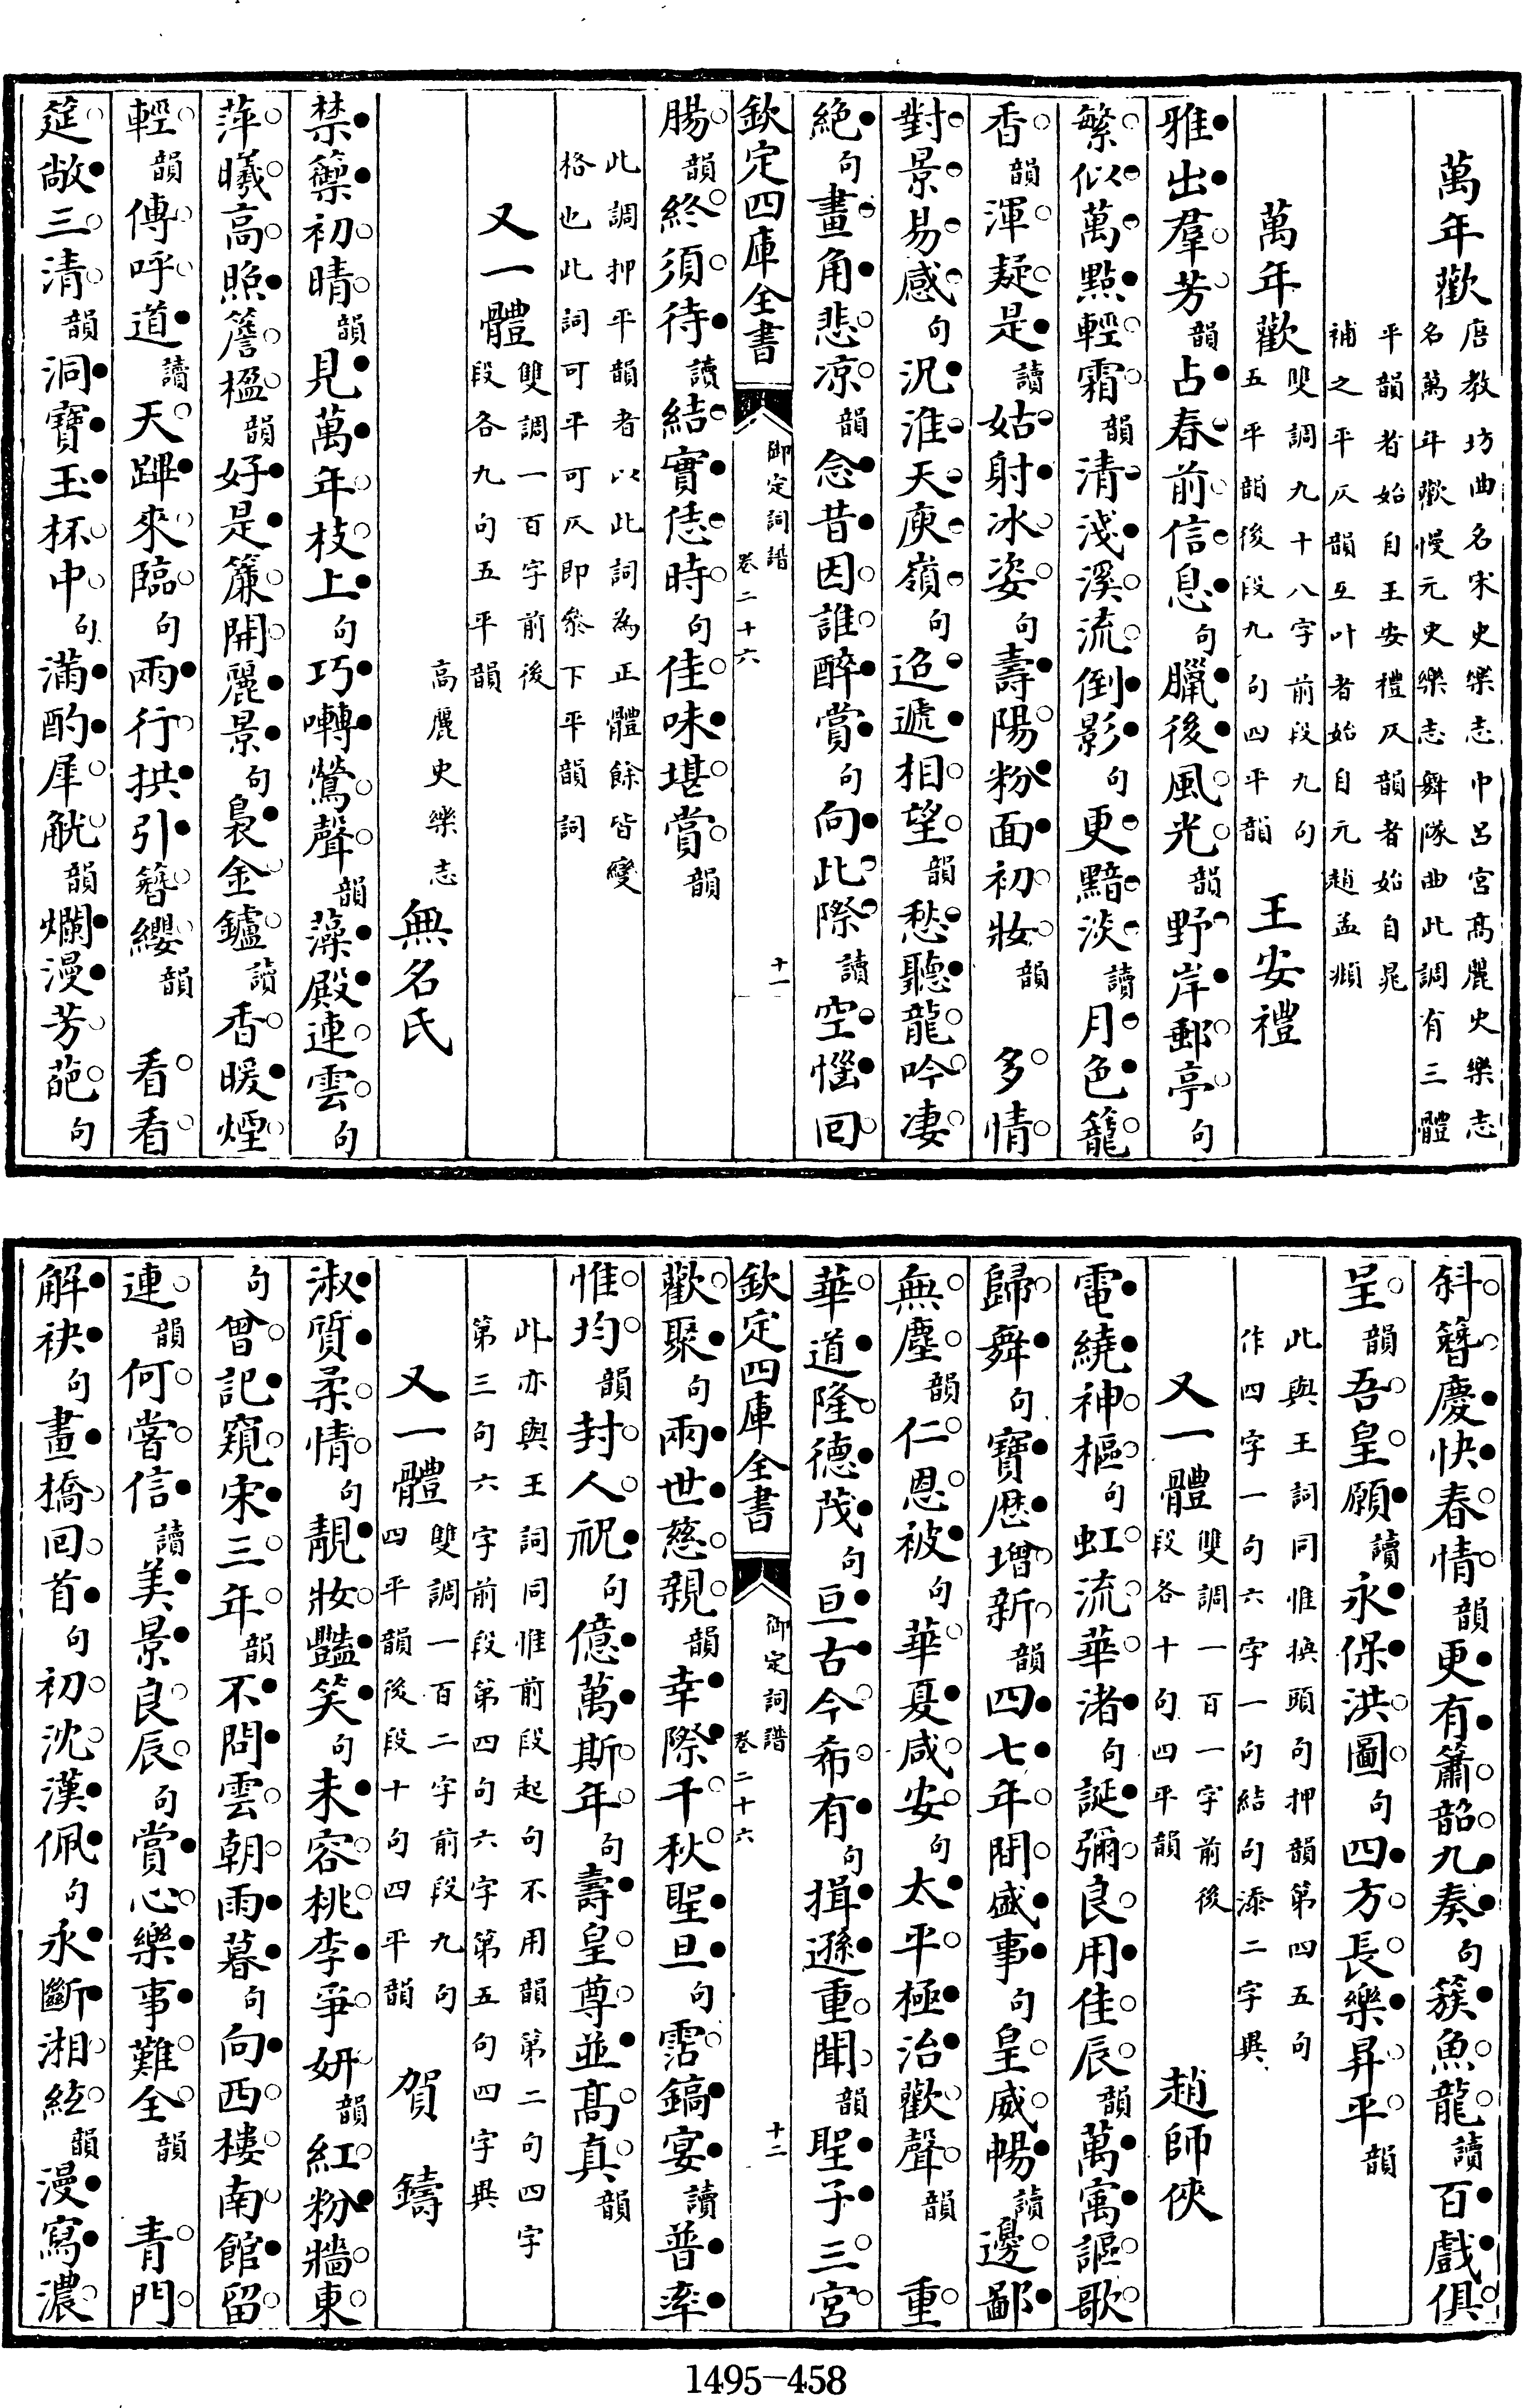 萬年歡唐教坊曲名宋史樂志中呂宮高麗史樂志
名萬年歡慢元史樂志舞隊曲此調有三體
平韻者始自王安禮仄韻者始自晁
補之平仄韻互叶者始自元趙孟頫
萬年歡雙調九十八字前段九句
五平韻後段九句四平韻 王安禮
雅出羣芳韻占春前信息句臘後風光韻野岸郵亭句
繁似萬點輕霜韻清淺溪流倒影句更黯淡讀月色籠
香韻渾疑是讀姑射冰姿句壽陽粉面初妝韻 多情
對景易感句況淮天庾嶺句迢遞相望韻愁聽龍吟凄
絶句畫角悲凉韻念昔因誰醉賞句向此際讀空惱回
欽定四庫全書 御定詞譜 卷二十六 十一
腸韻終須待讀結實恁時句佳味堪賞韻
此調押平韻者以此詞為正體餘皆變
格也此詞可平可仄即叅下平韻詞
又一體雙調一百字前後
段各九句五平韻
高麗史樂志 無名氏
禁籞初晴韻見萬年枝上句巧囀鶯聲韻藻殿連雲句
萍曦高照簷楹韻好是簾開麗景句裊金鑪讀香暖煙
輕韻傳呼道讀天蹕來臨句兩行拱引簪纓韻 看看
筵敞三清韻洞寶玉杯中句滿酌犀觥韻爛漫芳葩句
斜簪慶快春情韻更有簫韶九奏句簇魚龍讀百戲俱
呈韻吾皇願讀永保洪圖句四方長樂昇平韻
此與王詞同惟換頭句押韻第四五句
作四字一句六字一句結句添二字異
又一體雙調一百一字前後
段各十句四平韻 趙師俠
電繞神樞句虹流華渚句誕彌良用佳辰韻萬寓謳歌
歸舞句寶厯增新韻四七年間盛事句皇威暢讀邊鄙
無塵韻仁恩被句華夏咸安句太平極治歡聲韻 重
華道隆德茂句亘古今希有句揖遜重聞韻聖子三宮
欽定四庫全書 御定詞譜 卷二十六 十二
歡聚句兩世慈親韻幸際千秋聖旦句霑鎬宴讀普率
惟均韻封人祝句億萬斯年句壽皇尊並高真韻
此亦與王詞同惟前段起句不用韻第二句四字
第三句六字前段第四句六字第五句四字異
又一體雙調一百二字前段九句
四平韻後段十句四平韻 賀鑄
淑質柔情句靚妝豔笑句未容桃李爭妍韻紅粉牆東
句曾記窺宋三年韻不問雲朝雨暮句向西樓南館留
連韻何嘗信讀美景良辰句賞心樂事難全韻 青門
解袂句畫橋回首句初沈漢佩句永斷湘絃韻漫寫濃
1495-458